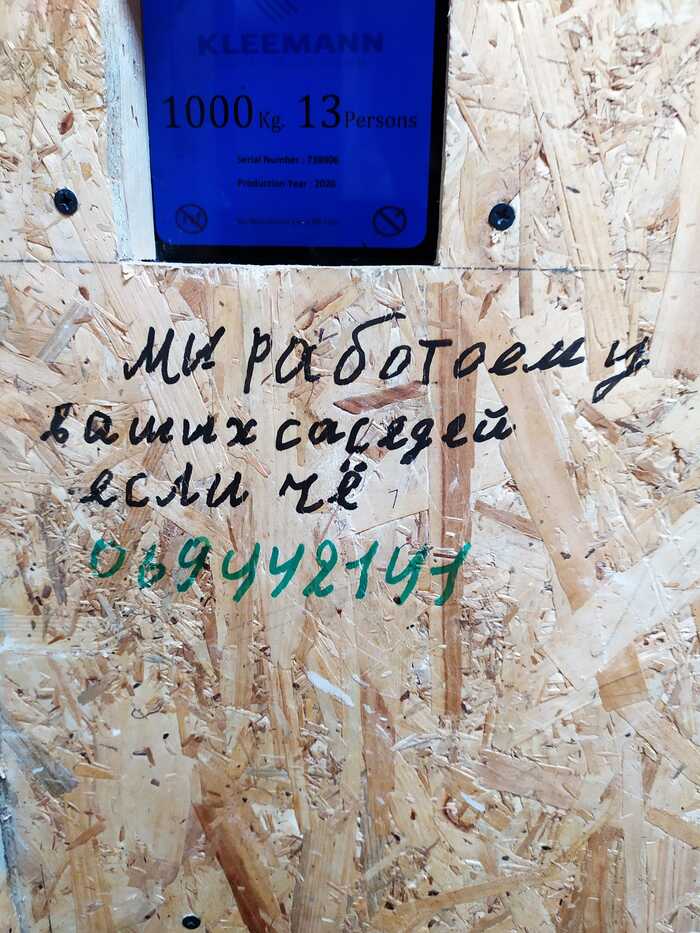 KLEEMANN
1000 Kg. 13 Persons
Serial Number : 738906
Production Year : 2020
Ми работоем у
ваших саседей
если чё
069442141